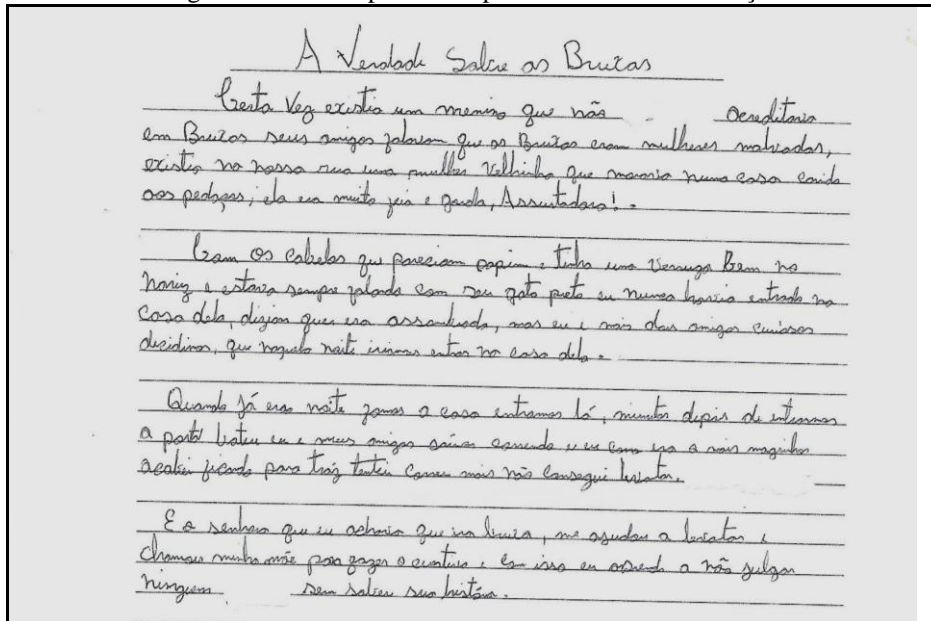 A Verdade Sobre as Bruxas
Certa Vez existia um menino que não acreditava
em Bruxas seus amigos falavam que as Bruxas eram mulheres malvadas,
existia na nossa rua uma mulher Velhinha que morava numa casa caida
aos pedaços, ela era muito feia e gorda, Assustadora!.
Com os cabelos que pareciam capim e tinha uma Verruga Bem no
Nariz e estava sempre falando com seu gato preto eu nunca havia entrado na
Casa dela, diziam que era assombrada, mas eu e mais dois amigos curiosos
decidimos, que naquela noite iriamos entrar na casa dela.
Quando já era noite fomos a casa entramos lá, minutos depois de entrarmos
a porta bateu eu e meus amigos correndo e eu como era a mais magrinha
acabei ficando para traz tentei correr mais não consegui levantar.
E a senhora que eu achava que era bruxa, me ajudou a levantar e
chamou minha mãe para fazer o curativo e com isso eu aprendi a não julgar
ninguem sem saber sua história.